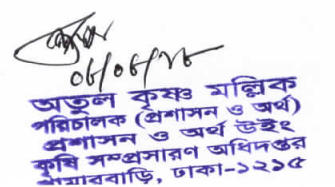 ০৮/০৮/১৮
অতুল কৃষ্ণ মল্লিক
পরিচালক (প্রশাসন ও অর্থ)
প্রশাসন ও অর্থ উইং
কৃষি সম্প্রসারণ অধিদপ্তর
খামারবাড়ি, ঢাকা-১২১৫